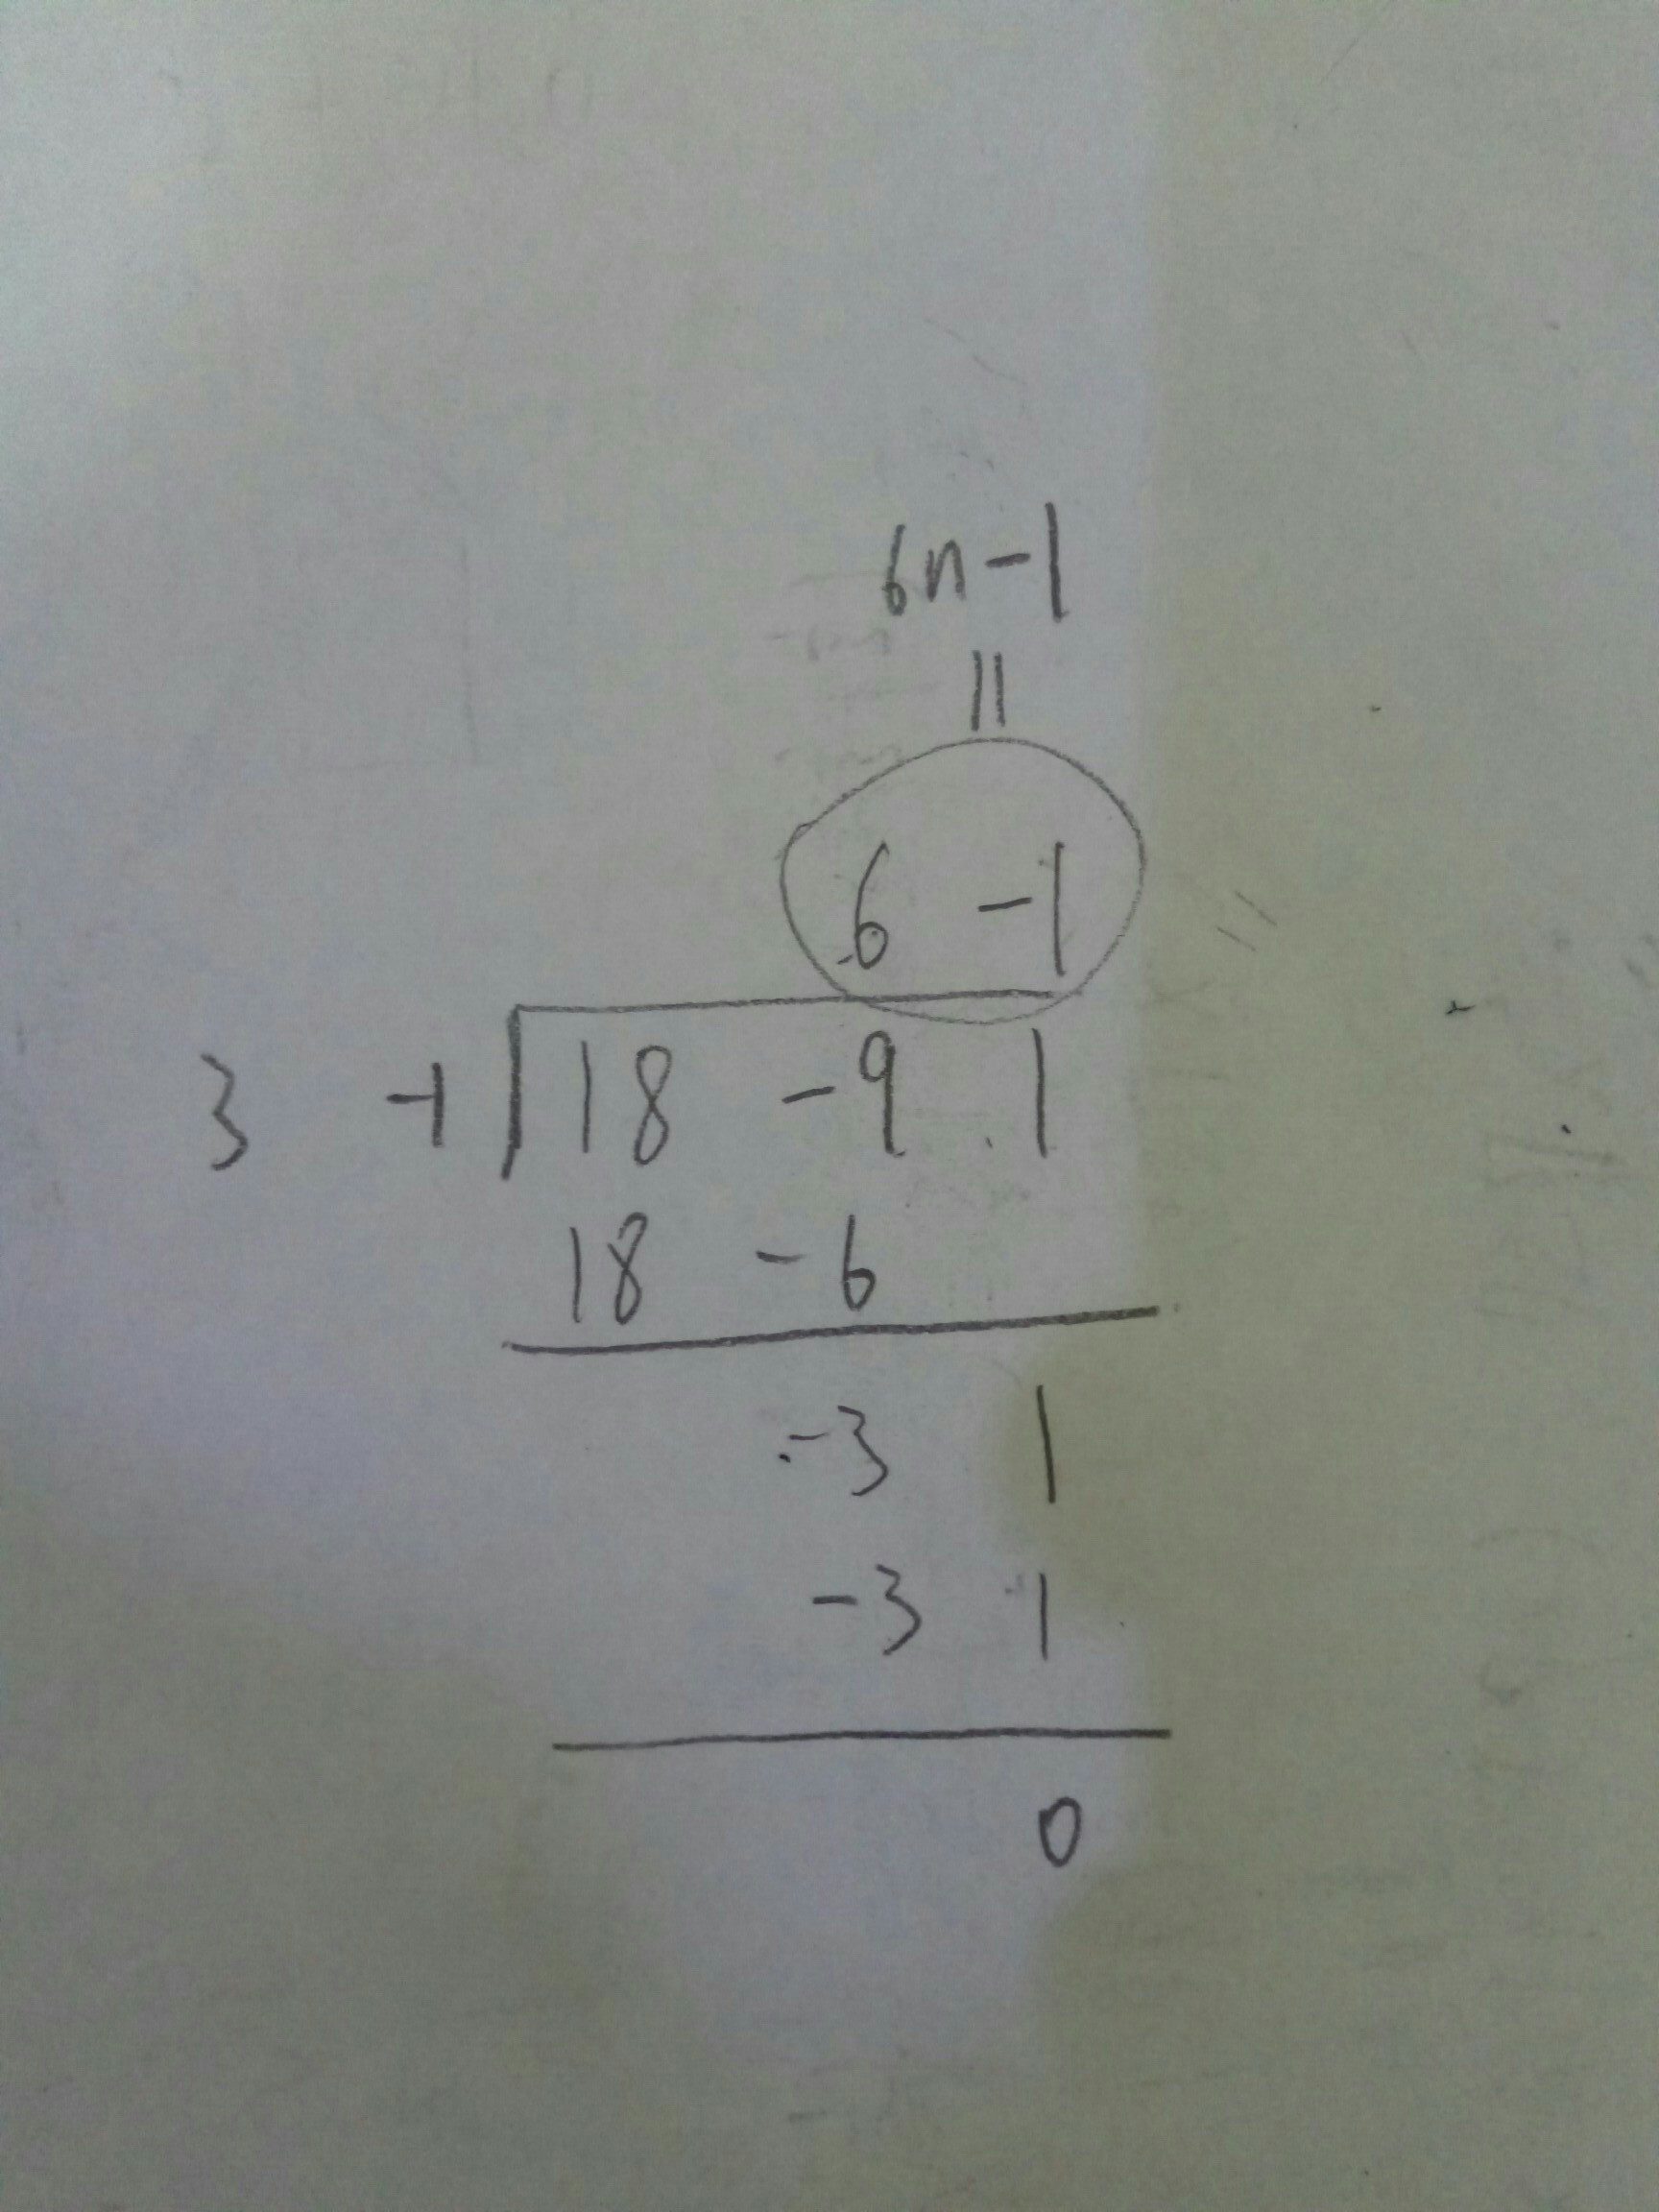 6n-1
||
6 -1
3 -1 18 -9 1
18 -6
-3 1
-3 1
0